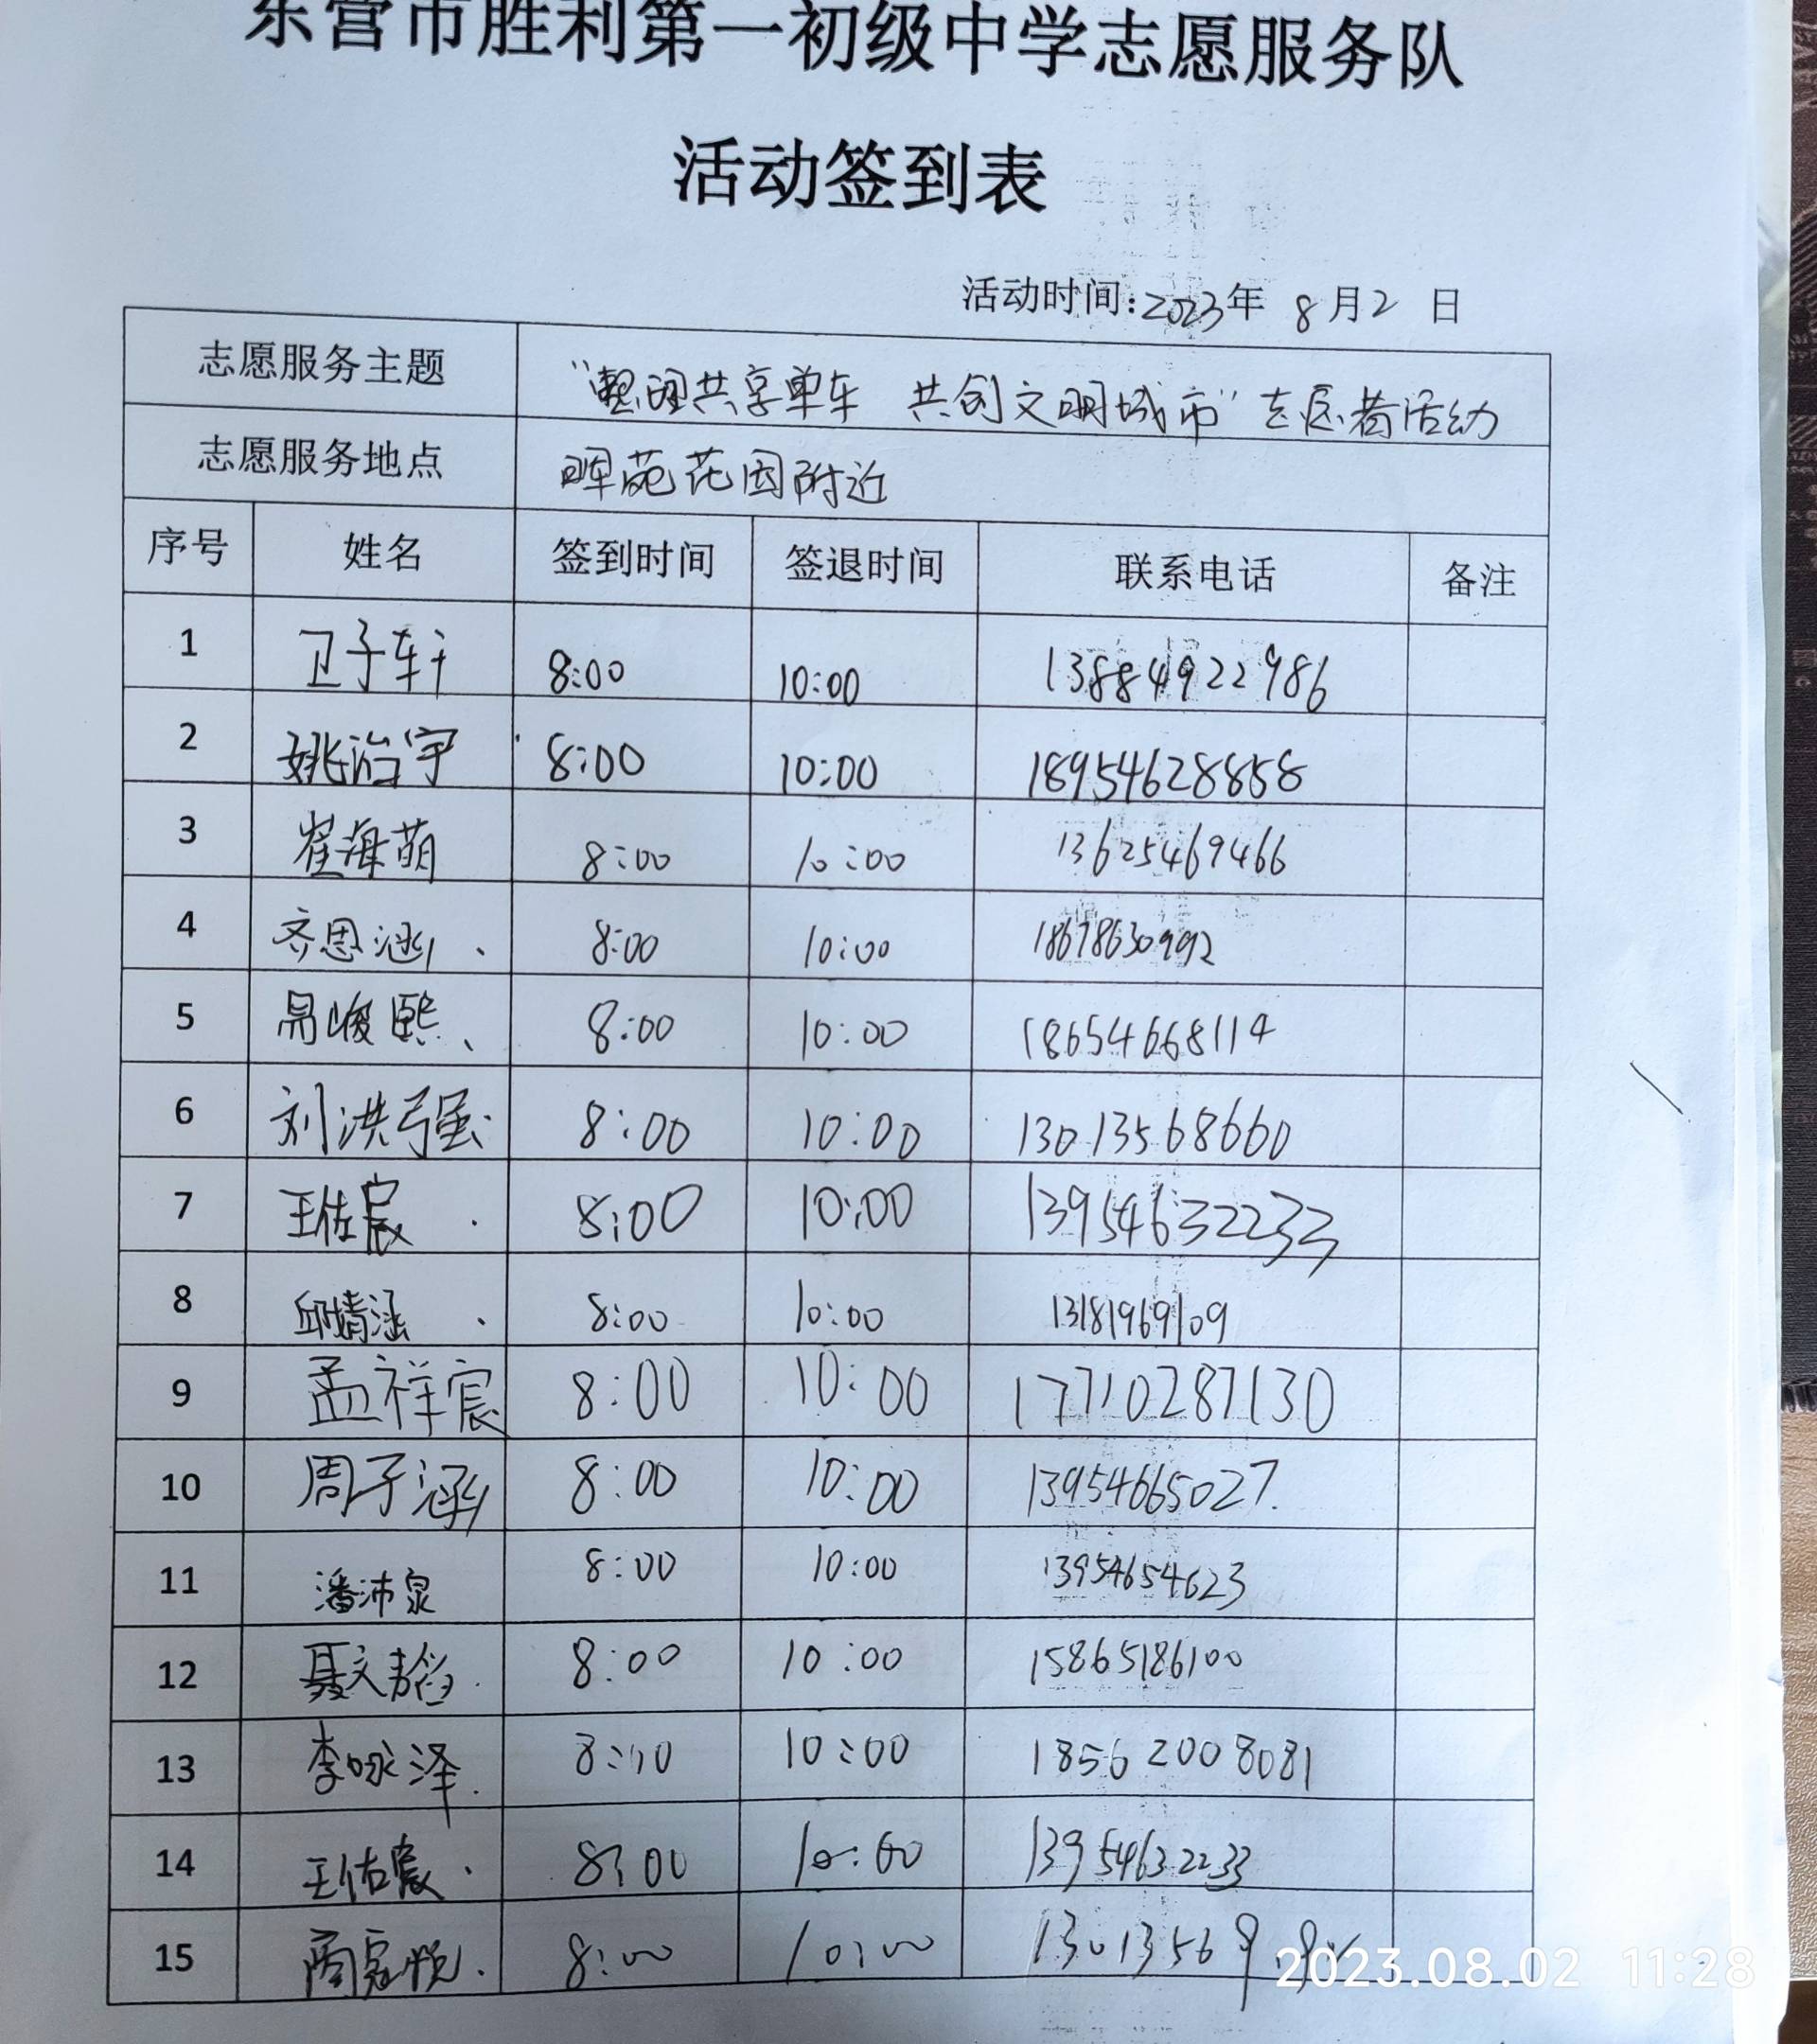 东营市胜利第一初级中学志愿服务队
活动签到表
活动时间:2023年 8月2 日
志愿服务主题 “整理共享单车 共创文明城市”志愿者活动
志愿服务地点 晖苑花园附近
序号 姓名 签到时间 签退时间 联系电话 备注
1 卫子轩 8:00 10:00 13884922986
2 姚治宇 8:00 10:00 18954628858
3 崔海萌 8:00 10:00 13625469466
4 齐思涵 8:00 10:00 18678630992
5 峻熙 8:00 10:00 18654668114
6 刘洪强 8:00 10:00 13013568660
7 王佐宸 8:00 10:00 13954632233
8 邱婧涵 8:00 10:00 13181969109
9 孟祥宸 8:00 10:00 17710287130
10 周子涵 8:00 10:00 13954665027
11 潘沛泉 8:00 10:00 13954654623
12 聂文韬 8:00 10:00 15865186100
13 李咏泽 8:00 10:00 18562008081
14 王佑宸 8:00 10:00 13954632233
15 8:00 10:00
2023.08.02 11:28